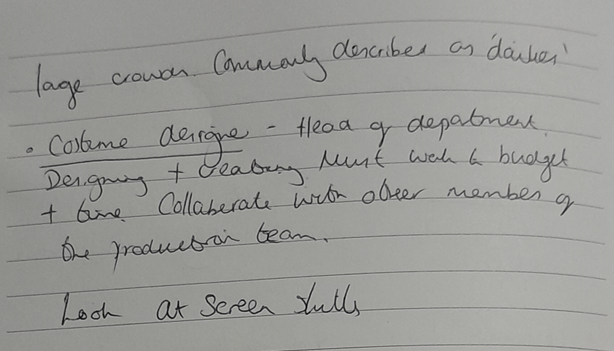 large crowds. Commonly describes as 'dailies'
• Costume designe - Head of department.
Designing + creating Must work to budget
+ time Collaberate with other member of
the production team.
Look at Screen stills